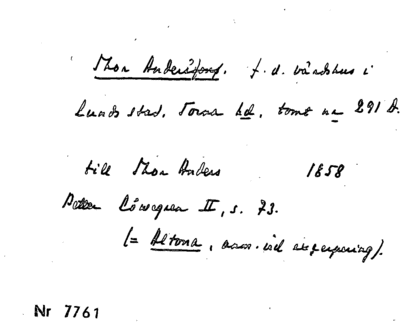 Thor Anders[...], f.d. värdshus i
Lunds stad, Torna hd, tomt nr 291 D.
till Thor Anders 1858
Löwegren II, s. 73.
(= Altona, nam. vid avspegring).
Nr 7761